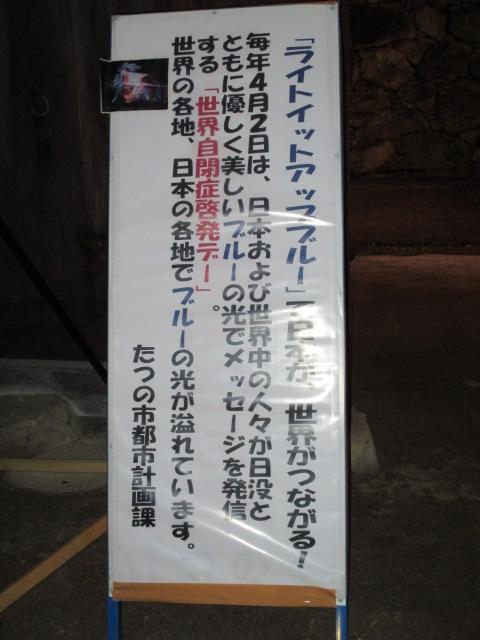 「ライトイットアップブルー」で日本が、世界がつながる！
毎年4月2日は、日本および世界中の人々が日没と
ともに優しく美しいブルーの光でメッセージを発信
する「世界自閉症啓発デー」。
世界の各地、日本の各地でブルーの光が溢れています。
たつの市都市計画課